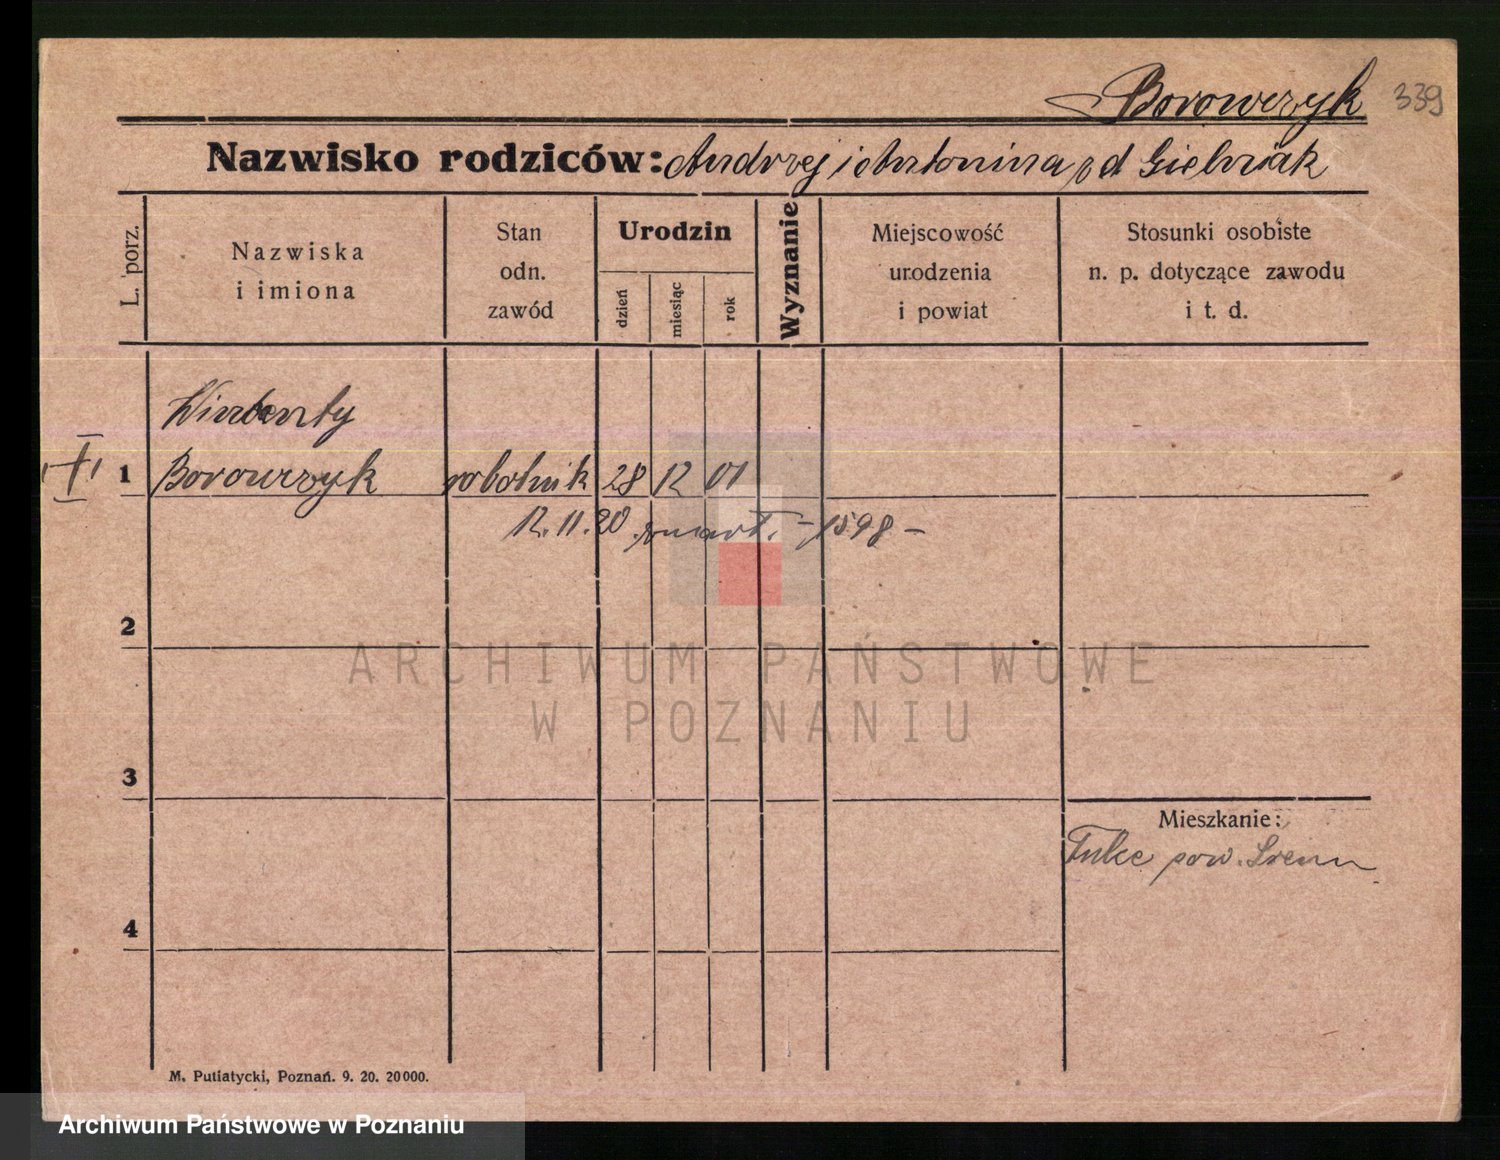 Borowczyk 339
Nazwisko rodziców: Andrzej i Antonina z d
L. porz.
Nazwiska
i imiona
Stan
odn.
zawód
Urodzin
dzień
miesiąc
rok
Wyznanie
Miejscowość
urodzenia
i powiat
Stosunki osobiste
n. p. dotyczące zawodu
i t. d.
Wincenty
1 Borowczyk robotnik 28 12 01
12.11.20 zmarł. - 1598 -
2
ARCHIWUM PAŃSTWOWE
W POZNANIU
3
Mieszkanie:
Tulce pow. Śrem
4
M. Putiatycki, Poznań. 9. 20. 20000.
Archiwum Państwowe w Poznaniu